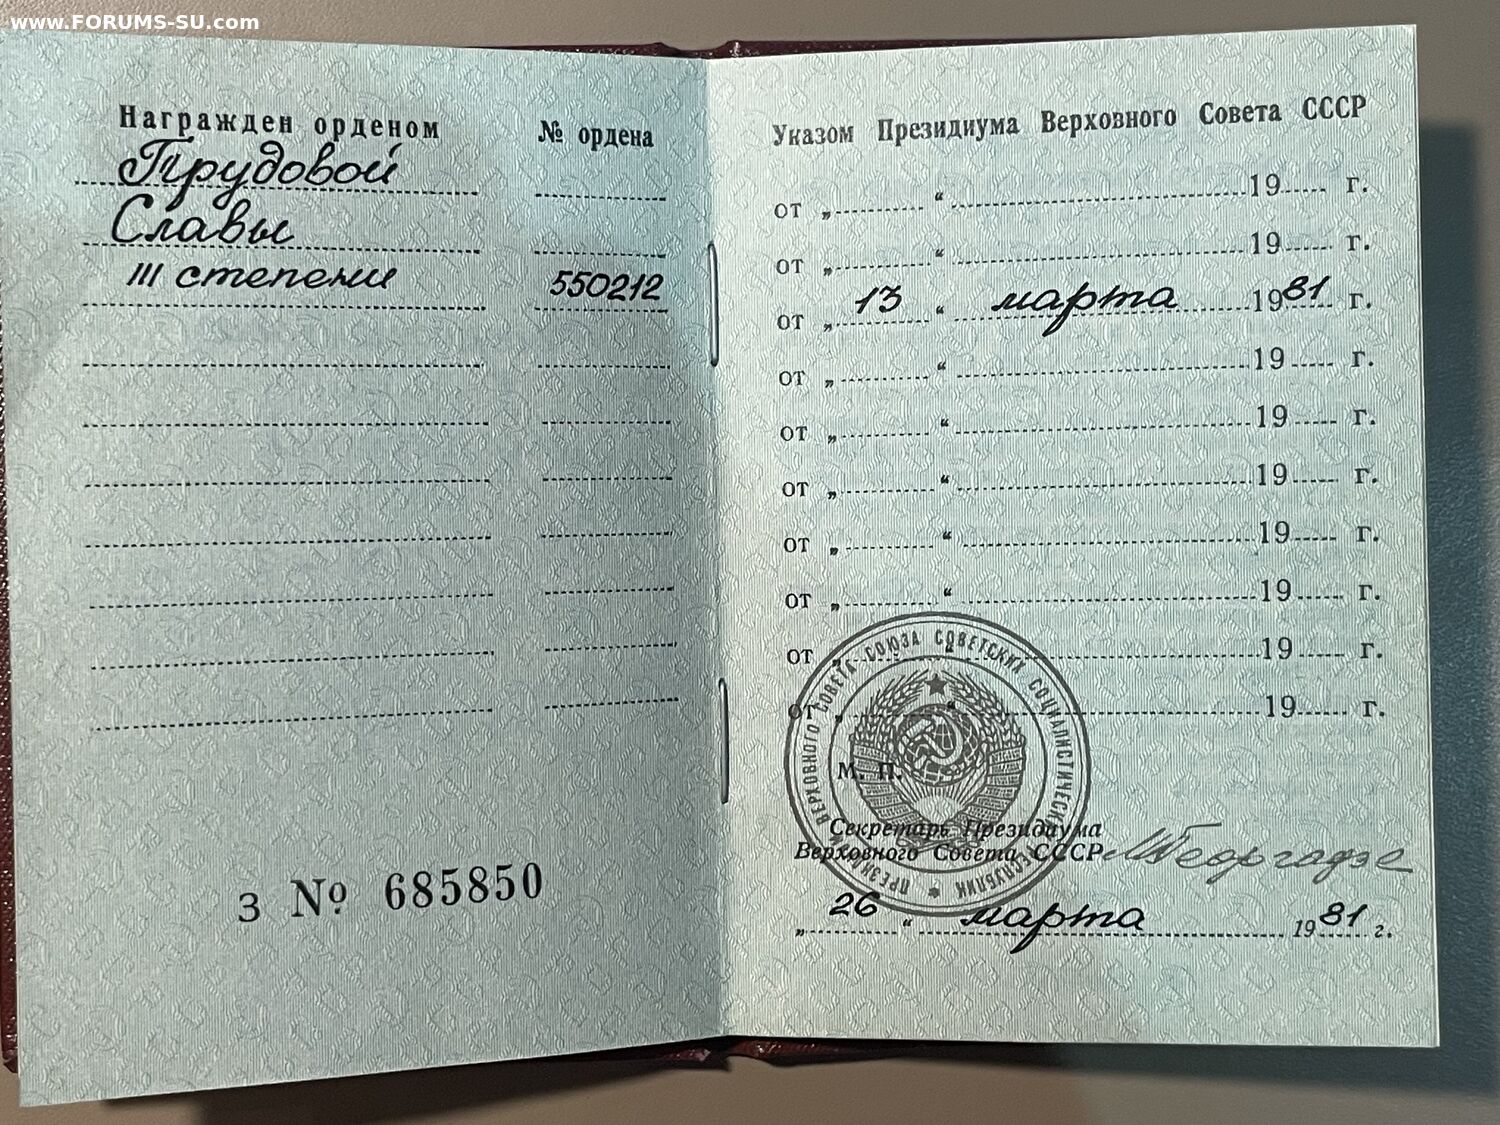 www.FORUMS-SU.com
Награжден орденом № ордена
Трудовой
Славы
III степени 550212
З № 685850
Указом Президиума Верховного Совета СССР
от „ “ 19 г.
от „ “ 19 г.
от „ 13 “ марта 1981 г.
от „ “ 19 г.
от „ “ 19 г.
от „ “ 19 г.
от „ “ 19 г.
от „ “ 19 г.
от „ “ 19 г.
от „ “ 19 г.
М. П.
ПРЕЗИДИУМ ВЕРХОВНОГО СОВЕТА СОЮЗА СОВЕТСКИХ СОЦИАЛИСТИЧЕСКИХ РЕСПУБЛИК
Секретарь Президиума
Верховного Совета СССР МГеоргадзе
„ 26 “ марта 1981 г.